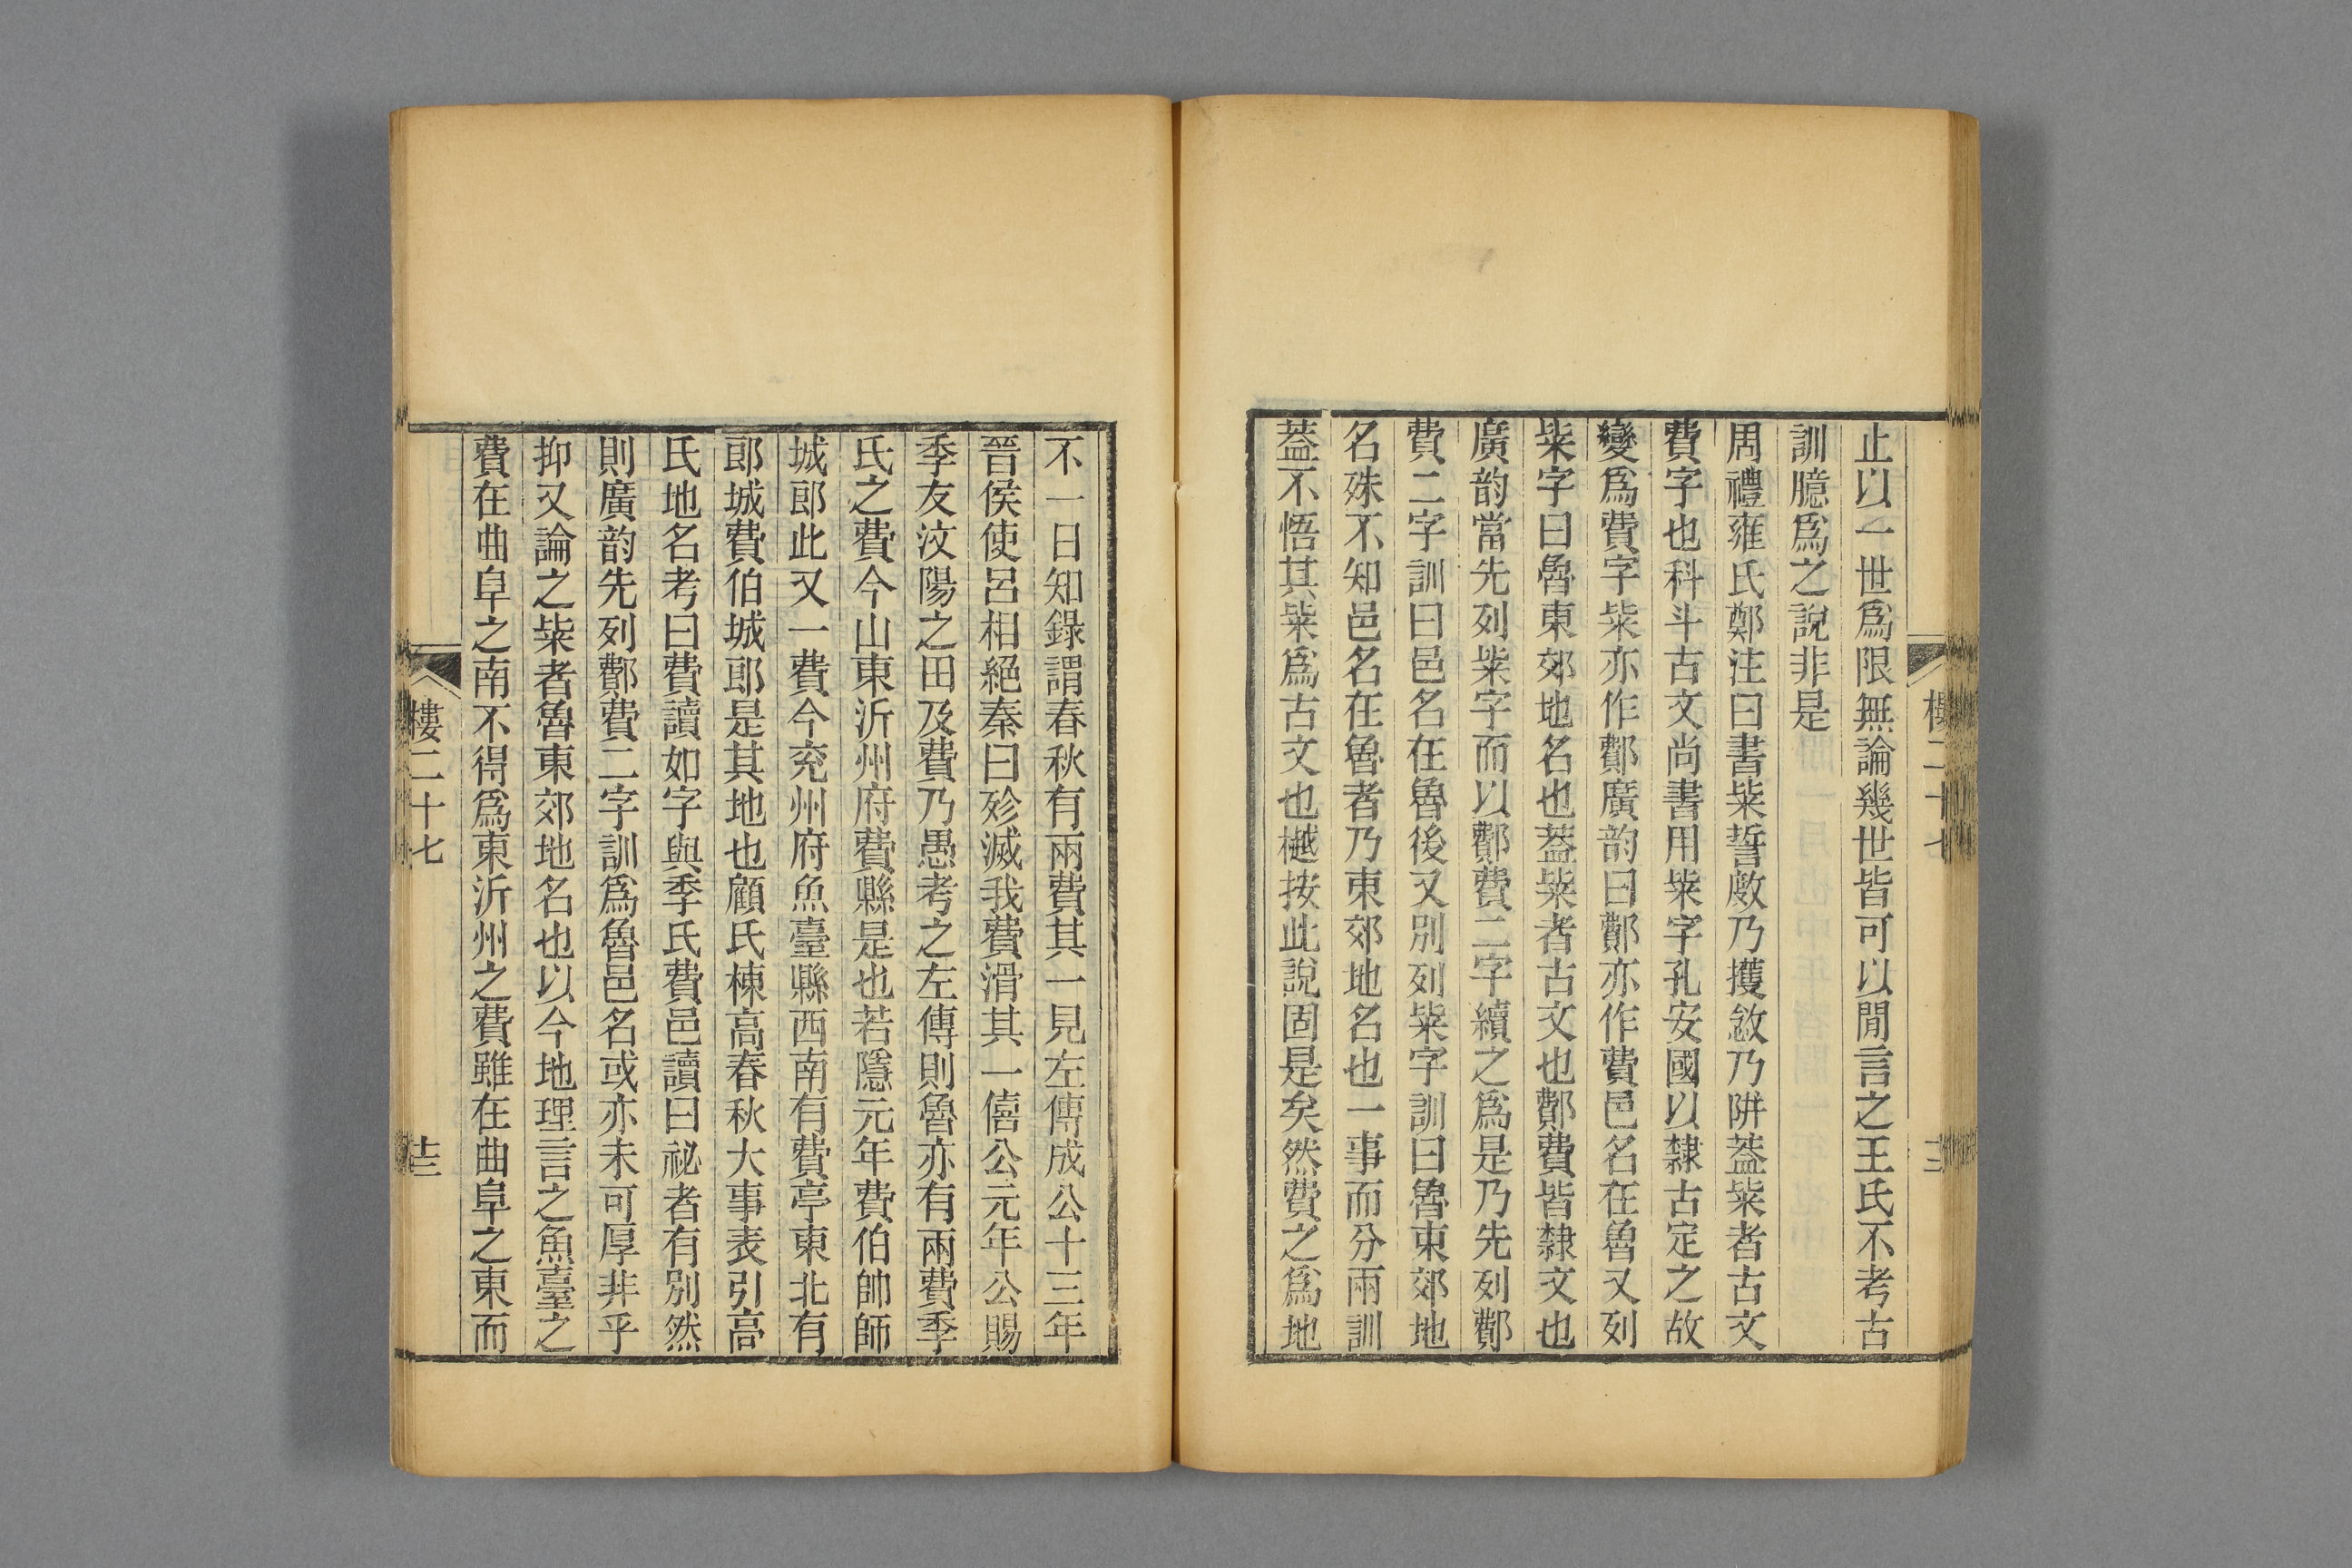 止以一世爲限無論幾世皆可以閒言之王氏不考古
訓臆爲之說非是
周禮雍氏鄭注曰書粊誓敜乃擭敜乃阱葢粊者古文
費字也科斗古文尚書用粊字孔安國以隸古定之故
變爲費字粊亦作鄪廣韵曰鄪亦作費邑名在魯又列
粊字曰魯東郊地名也葢粊者古文也鄪費皆隸文也
廣韵當先列粊字而以鄪費二字續之爲是乃先列鄪
費二字訓曰邑名在魯後又別列粊字訓曰魯東郊地
名殊不知邑名在魯者乃東郊地名也一事而分兩訓
葢不悟其粊爲古文也樾按此說固是矣然費之爲地
樓二十七
不一日知錄謂春秋有兩費其一見左傳成公十三年
晉侯使呂相絕秦曰殄滅我費滑其一僖公元年公賜
季友汶陽之田及費乃愚考之左傳則魯亦有兩費季
氏之費今山東沂州府費縣是也若隱元年費伯帥師
城郎此又一費今兖州府魚臺縣西南有費亭東北有
郎城費伯城郎是其地也顧氏棟高春秋大事表引高
氏地名考曰費讀如字與季氏費邑讀曰祕者有別然
則廣韵先列鄪費二字訓爲魯邑名或亦未可厚非乎
抑又論之粊者魯東郊地名也以今地理言之魚臺之
費在曲阜之南不得爲東沂州之費雖在曲阜之東而
樓二十七